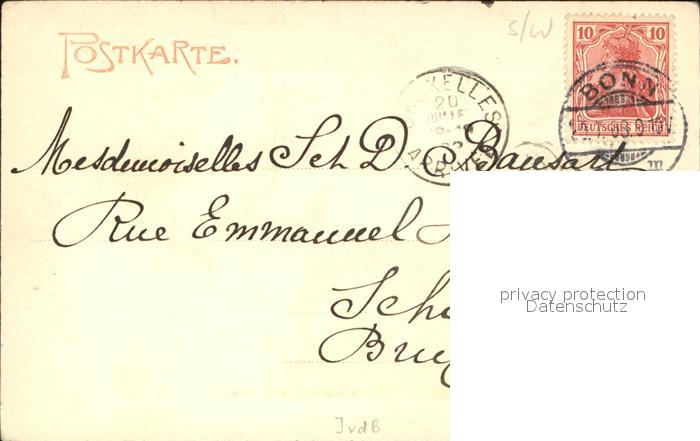 s/w
POSTKARTE.
10 10
DEUTSCHES REICH
BONN
BRUXELLES
20
Mesdemoiselles Sch D. Bansart
Rue Emmanuel
privacy protection
Datenschutz
JvdB